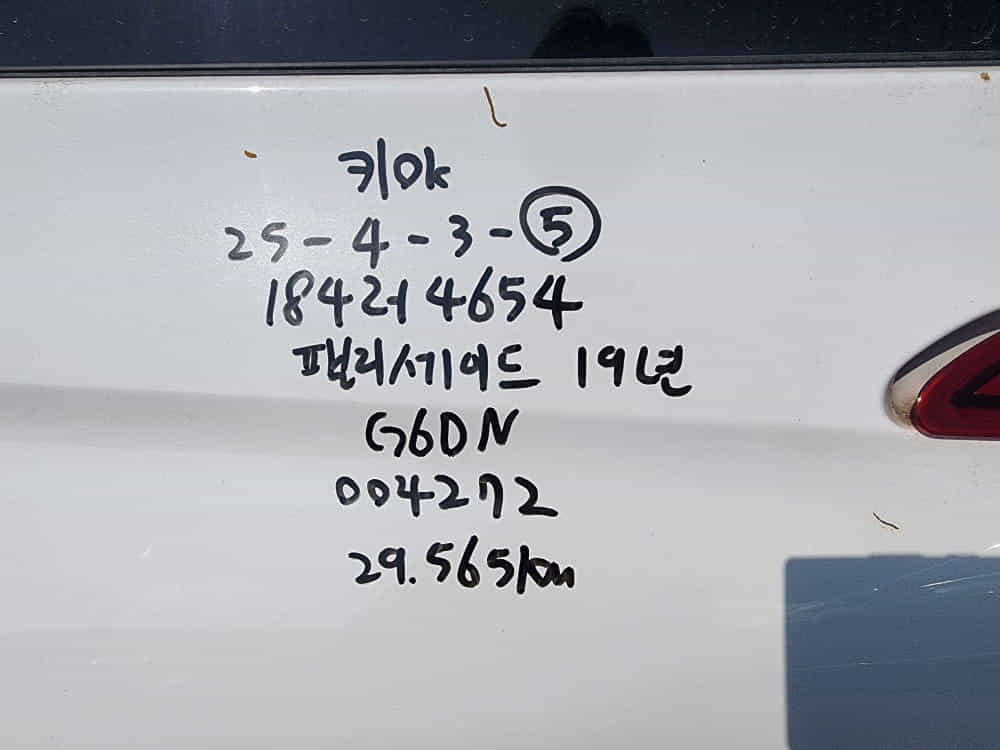 키ok
25-4-3-⑤
184러4654
팰리세이드 19년
G6DN
004272
29.565km